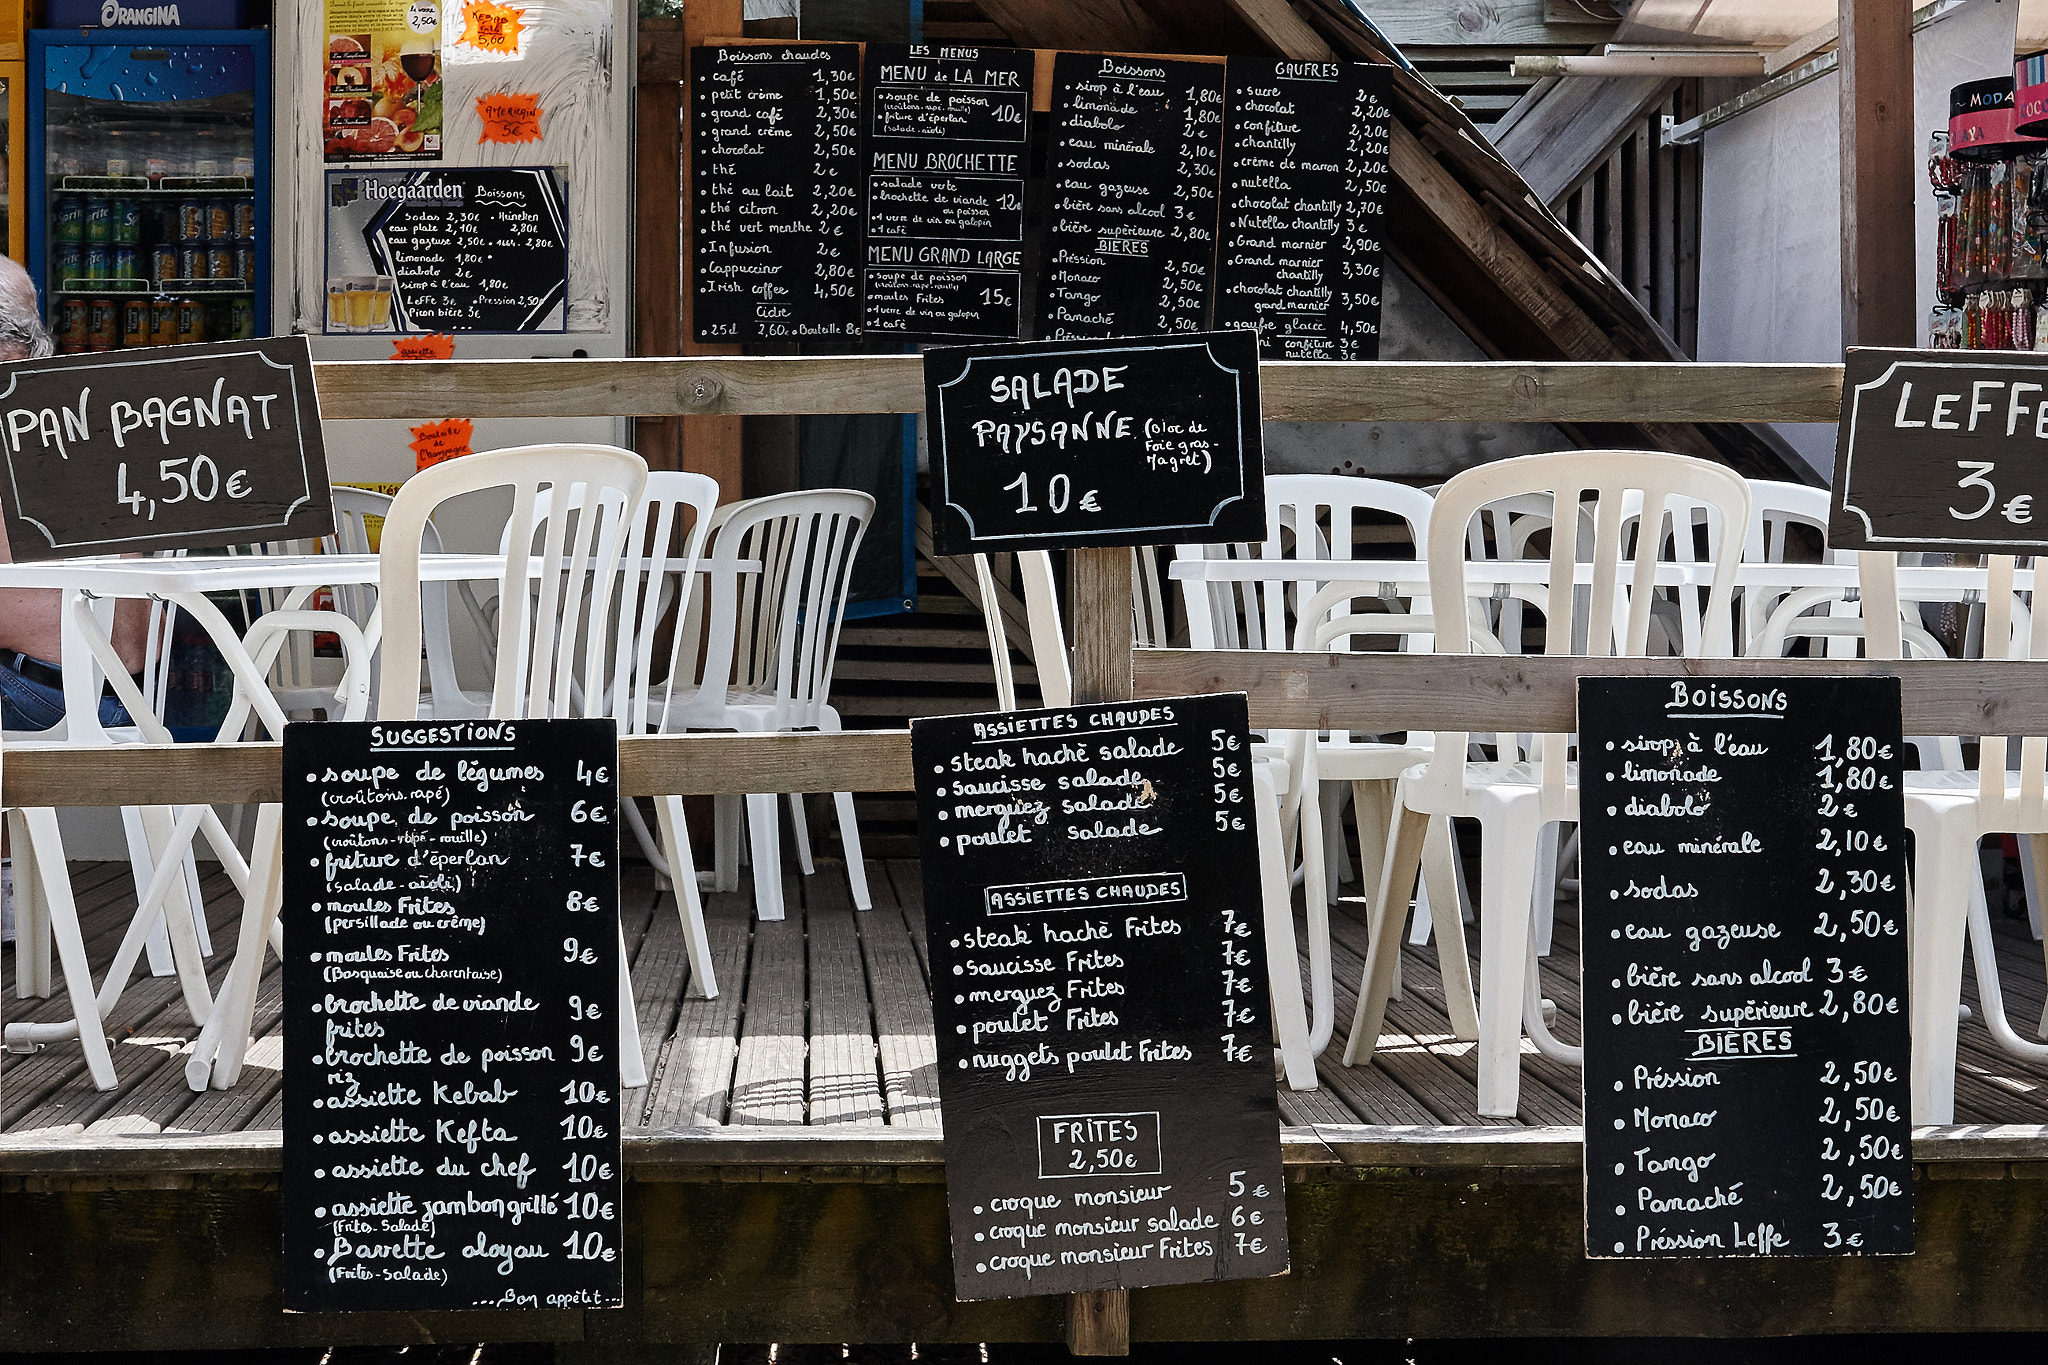 ORANGINA
le verre
2,50€
KEBAB
5,60
AMERICAIN
5€
Hoegaarden Boissons
Sodas 2,30€ • Heineken
eau plate 2,10€ 2,80€
eau gazeuse 2,50€ • 1664. 2,80€
limonade 1,80€
diabolo 2€
sirop à l'eau 1,80€
Leffe 3€ • Pression 2,50€
Picon bière 3€
assiette
Bouteille
de
Champagne
Boissons chaudes
• café 1,30€
• petit crème 1,50€
• grand café 2,30€
• grand crème 2,50€
• chocolat 2,50€
• thé 2€
• thé au lait 2,20€
• thé citron 2,20€
• thé vert menthe 2€
• Infusion 2€
• Cappuccino 2,80€
• Irish coffee 4,50€
Cidre
• 25cl 2,60€ • Bouteille 8€
LES MENUS
MENU de LA MER
• soupe de poisson
(croûtons-rapé-rouille)
• friture d'éperlan 10€
(salade-aïoli)
MENU BROCHETTE
• salade verte
• brochette de viande 12€
ou poisson
• 1 verre de vin ou galopin
• 1 café
MENU GRAND LARGE
• soupe de poisson
(croûtons-rapé-rouille)
• moules Frites 15€
• 1 verre de vin ou galopin
• 1 café
Boissons
• sirop à l'eau 1,80€
• limonade 1,80€
• diabolo 2€
• eau minérale 2,10€
• sodas 2,30€
• eau gazeuse 2,50€
• bière sans alcool 3€
• bière supérieure 2,80€
BIÈRES
• Préssion 2,50€
• Monaco 2,50€
• Tango 2,50€
• Panaché 2,50€
GAUFRES
• sucre 2€
• chocolat 2,20€
• confiture 2,20€
• chantilly 2,20€
• crème de marron 2,20€
• nutella 2,50€
• chocolat chantilly 2,70€
• Nutella chantilly 3€
• Grand marnier 2,90€
• Grand marnier
chantilly 3,30€
• chocolat chantilly
grand marnier 3,50€
• gaufre glacée 4,50€
confiture 3€
nutella 3€
~ MODA
PAN BAGNAT
4,50€
SALADE
PAYSANNE (Bloc de
Foie gras-
Magret)
10€
LEFFE
3€
SUGGESTIONS
• soupe de légumes 4€
(croûtons.rapé)
• soupe de poisson 6€
(croûtons-rapé-rouille)
• friture d'éperlan 7€
(salade-aïoli)
• moules Frites 8€
(persillade ou crême)
• moules Frites 9€
(Basquaise ou charentaise)
• brochette de viande 9€
frites
• brochette de poisson 9€
riz
• assiette Kebab 10€
• assiette Kefta 10€
• assiette du chef 10€
• assiette jambon grillé 10€
(Frites-Salade)
• Bavette aloyau 10€
(Frites-salade)
...Bon appétit...
ASSIETTES CHAUDES
• steak hachè salade 5€
• saucisse salade 5€
• merguez salade 5€
• poulet salade 5€
ASSIETTES CHAUDES
• steak hachè Frites 7€
• saucisse Frites 7€
• merguez Frites 7€
• poulet Frites 7€
• nuggets poulet Frites 7€
FRÎTES
2,50€
• croque monsieur 5€
• croque monsieur salade 6€
• croque monsieur Frites 7€
BOISSONS
• sirop à l'eau 1,80€
• limonade 1,80€
• diabolo 2€
• eau minérale 2,10€
• sodas 2,30€
• eau gazeuse 2,50€
• bière sans alcool 3€
• bière supérieure 2,80€
BIÈRES
• Préssion 2,50€
• Monaco 2,50€
• Tango 2,50€
• Panaché 2,50€
• Préssion Leffe 3€